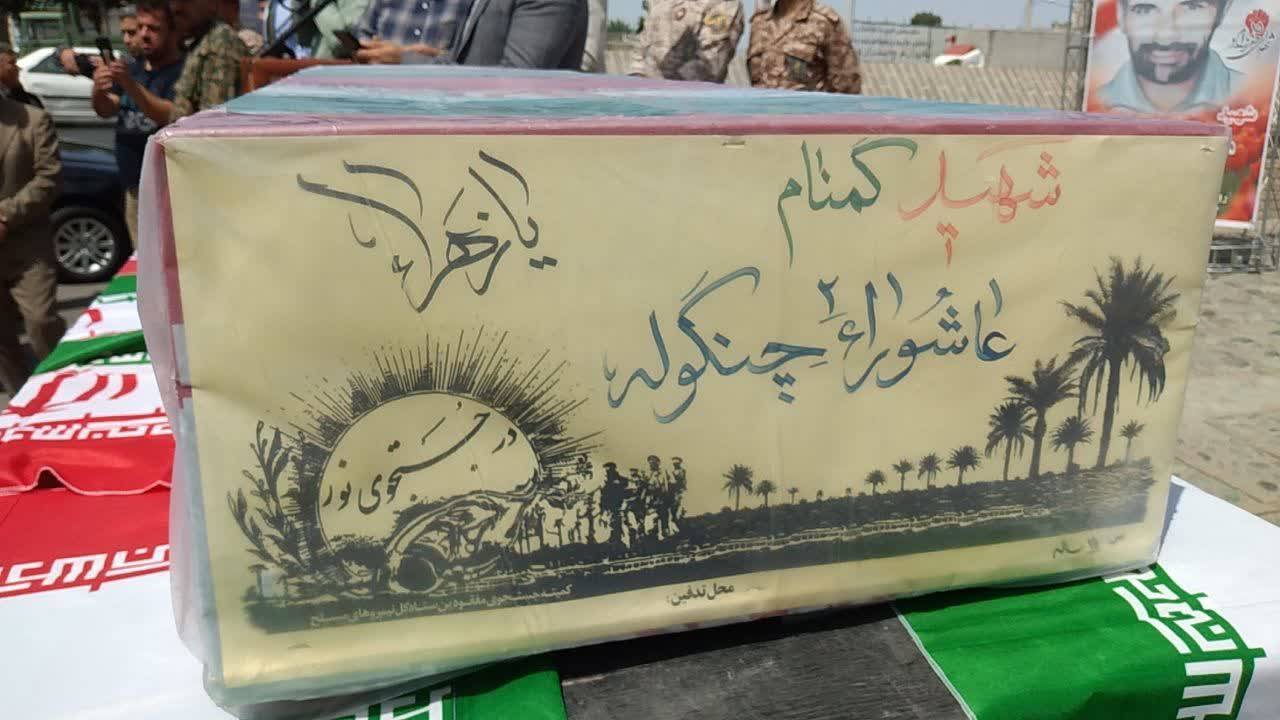 شهید گمنام
یا زهرا
عاشورای ۲ چنگوله
در جستجوی نور
ساله
محل تدفین:
کمیته جستجوی مفقودین ستاد کل نیروهای مسلح
شهید